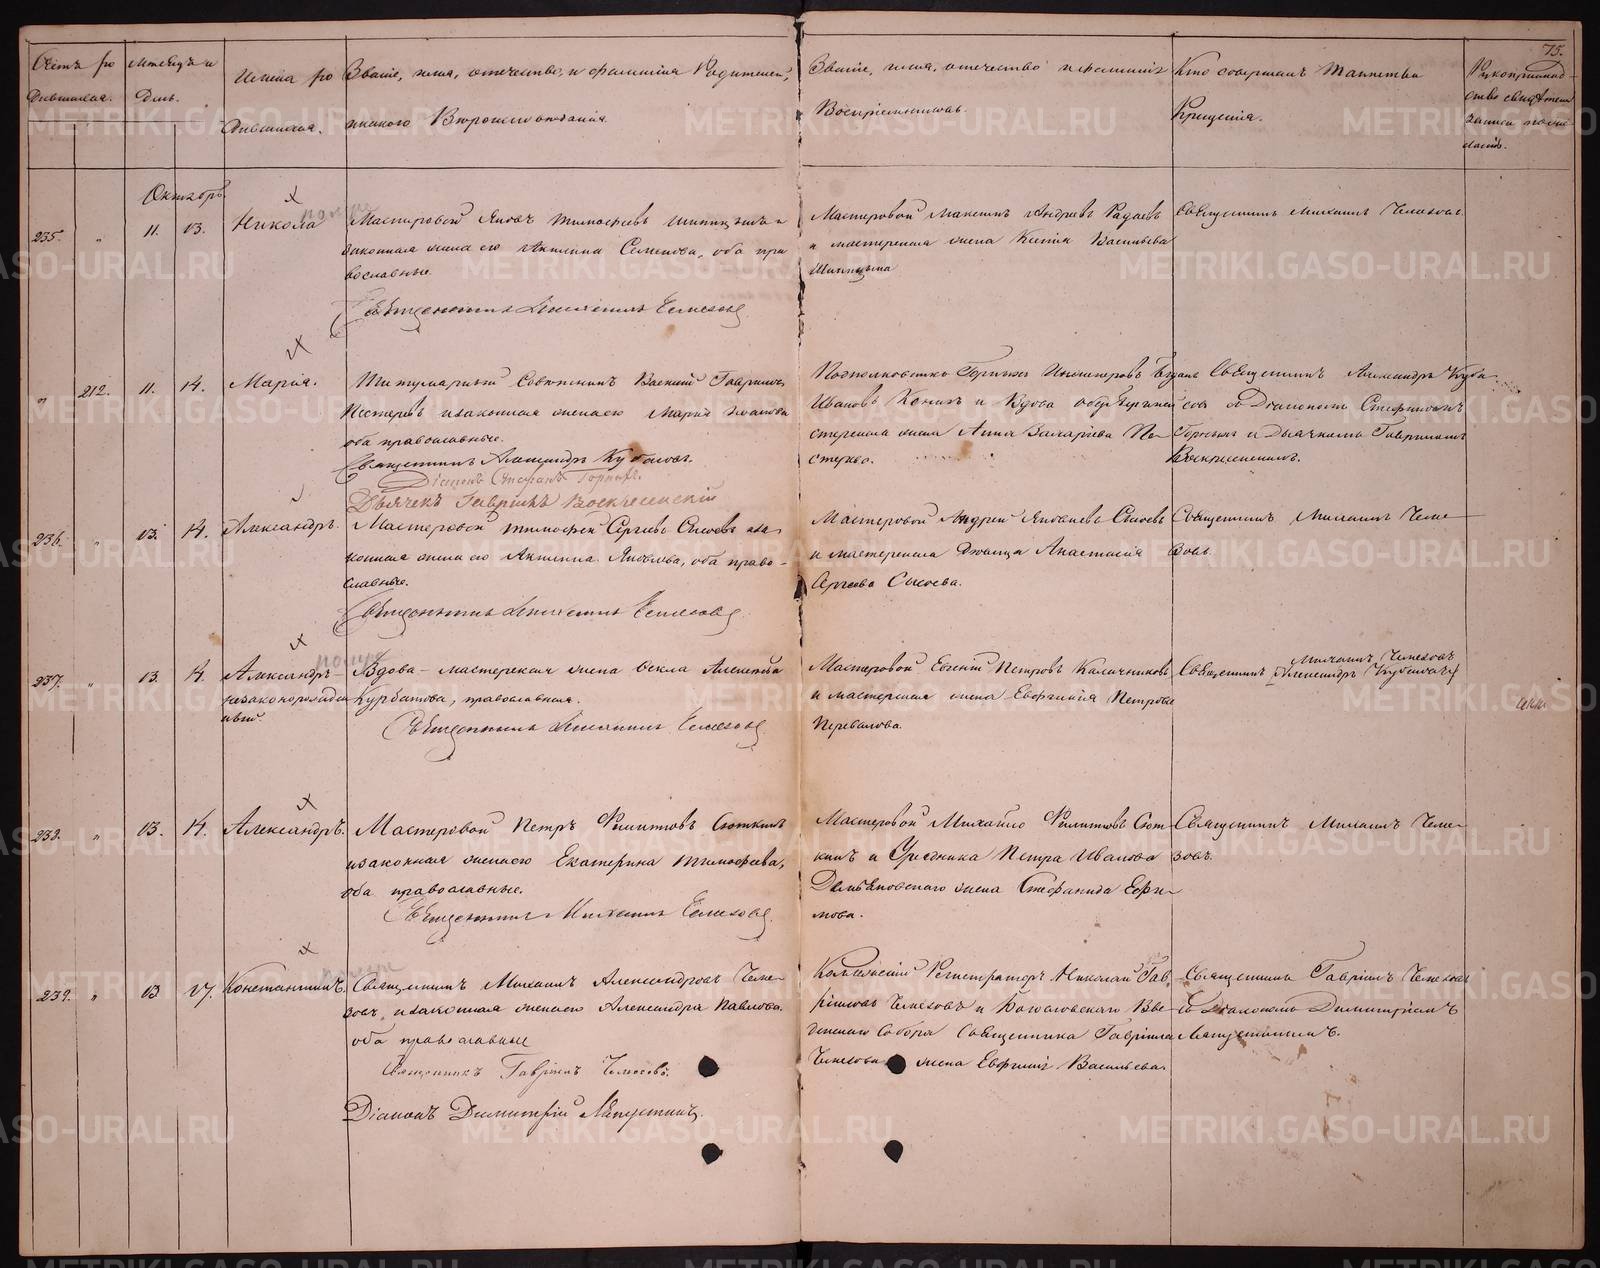 75.
Счетъ ро
дившихся.
Мѣсяцъ и
День.
Имена ро
дившихся.
Званіе, имя, отечество, и фамилія Родителей,
и какого Вѣроисповѣданія.
Званіе, имя, отечество и фамилія
Воспріемниковъ.
Кто совершалъ таинство
Крещенія.
Рукоприклад-
ство свидѣтелей
записи по же-
ланію.
Октябрь
235. " 11. 13. Никола
Мастеровой Яковъ Тимофеевъ Шипицынъ и
законная жена его Акилина Семенова, оба пра
вославные.
Священникъ Михаилъ Чемезовъ
Мастеровой Максимъ Андреевъ Радаевъ
и мастерская жена Ксенія Васильева
Шипицына
Священникъ Михаилъ Чемезовъ.
" 212. 11. 14. Марія.
Титулярный Совѣтникъ Василий Гавриловъ
Пестеревъ и законная жена его Марія Иванова
оба православные.
Священникъ Александръ Кубасовъ.
Діаконъ Стефанъ Горныхъ.
Дьячекъ Гавріилъ Воскресенскій
Подполковникъ Горныхъ Инженеровъ
Ивановъ и Вдова
жена Анна Захаріева Пе-
стерева.
Священникъ Александръ Куба
совъ съ Діакономъ Стефаномъ
Горныхъ и Дьячкомъ Гавріиломъ
Воскресенскимъ.
236. " 13. 14. Александръ.
Мастеровой Тимофей Сергеевъ Сысоевъ и за-
конная жена его Акилина Яковлева, оба право-
славные.
Священникъ Михаилъ Чемезовъ
Мастеровой Андрей Яковлевъ Сысоевъ
и мастерская Дѣвица Анастасія
Сергеева Сысоева.
Священникъ Михаилъ Чеме-
зовъ.
237. " 13. 14. Александръ-
незаконорожден
ный.
Вдова - мастерская жена Фекла Алексеева
Курбатова, православная.
Священникъ Михаилъ Чемезовъ
Мастеровой Евгеній Петровъ Калачниковъ
и мастерская жена Евфимія Петрова
Перевалова.
Михаилъ Чемезовъ
Священникъ [Александръ Кубасовъ]
238. " 13. 14. Александръ.
Мастеровой Петръ Филиповъ Сюткинъ
и законная жена его Екатерина Тимофеева,
оба православные.
Священникъ Михаилъ Чемезовъ
Мастеровой Михайло Филиповъ Сют-
кинъ и Урядника Петра Иванова
жена Стефанида Ефи-
мова.
Священникъ Михаилъ Чеме-
зовъ.
239. " 13 17. Константинъ.
Священникъ Михаилъ Александровъ Чеме-
зовъ, и законная жена его Александра Павлова.
оба православные
Священникъ Гавріилъ Чемезовъ.
Діаконъ Димитрій Ляпустинъ.
Колежскій Регистраторъ Николай Гав-
рииловъ Чемезовъ и Колыванскаго Вве-
денскаго Собора Священника Гавріила
Чемезова жена Евфимія Васильева.
Священникъ Гавріилъ Чемезовъ
съ Діакономъ Димитріемъ
Ляпустинымъ.
METRIKI.GASO-URAL.RU